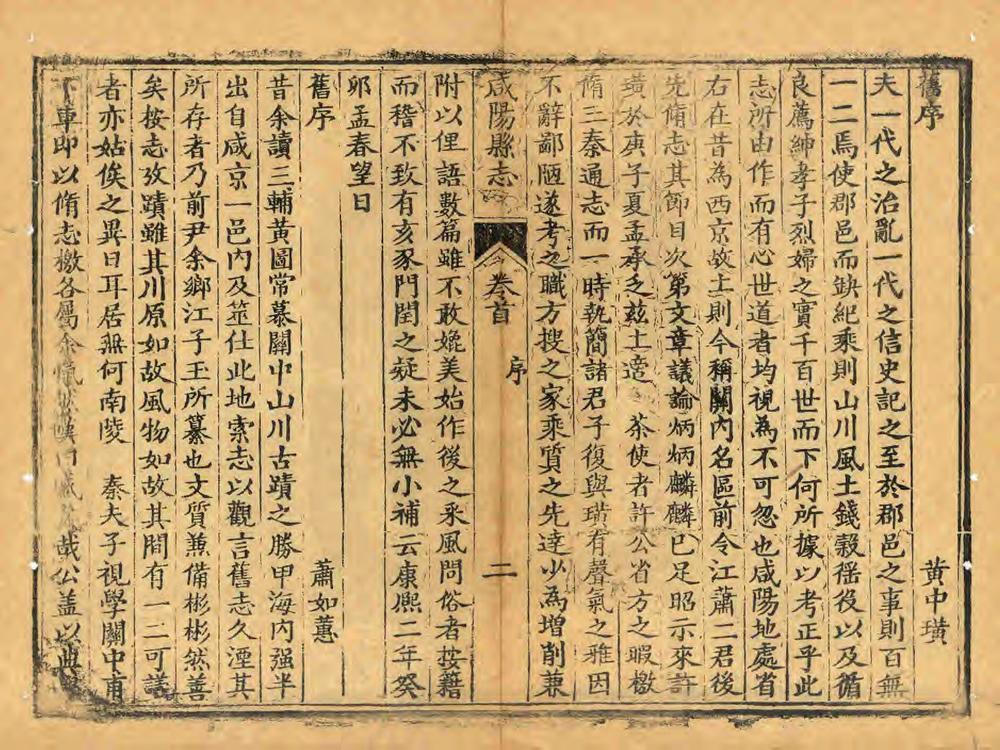 舊序 黄中璜
夫一代之治亂一代之信史記之至於郡邑之事則百無
一二焉使郡邑而缺紀乘則山川風土錢穀徭役以及循
良薦紳孝子烈婦之實千百世而下何所據以考正乎此
志所由作而有心世道者均視為不可忽也咸陽地處省
右在昔為西京故土則今稱關內名區前令江蕭二君後
先脩志其節目次第文章議論炳炳麟麟已足昭示來許
璜於庚子夏孟承乏兹土適 茶使者許公省方之暇檄
脩三秦通志而一時執簡諸君子復與璜有聲氣之雅因
不辭鄙陋遂考之職方搜之家乘質之先達少為增削兼
咸陽縣志 卷首 序 二
附以俚語數篇雖不敢媲美始作後之采風問俗者按籍
而稽不致有亥豕門閏之疑未必無小補云康熈二年癸
卯孟春望日
舊序 蕭如蕙
昔余讀三輔黃圖常慕關中山川古蹟之勝甲海內强半
出自咸京一邑內及筮仕此地索志以觀言舊志久湮其
所存者乃前尹余鄉江子玉所纂也文質兼備彬彬然善
矣按志攷蹟雖其川原如故風物如故其間有一二可議
者亦姑俟之異日耳居無何南陵 秦夫子視學關中甫
下車即以脩志檄各屬余 哉公盖以典